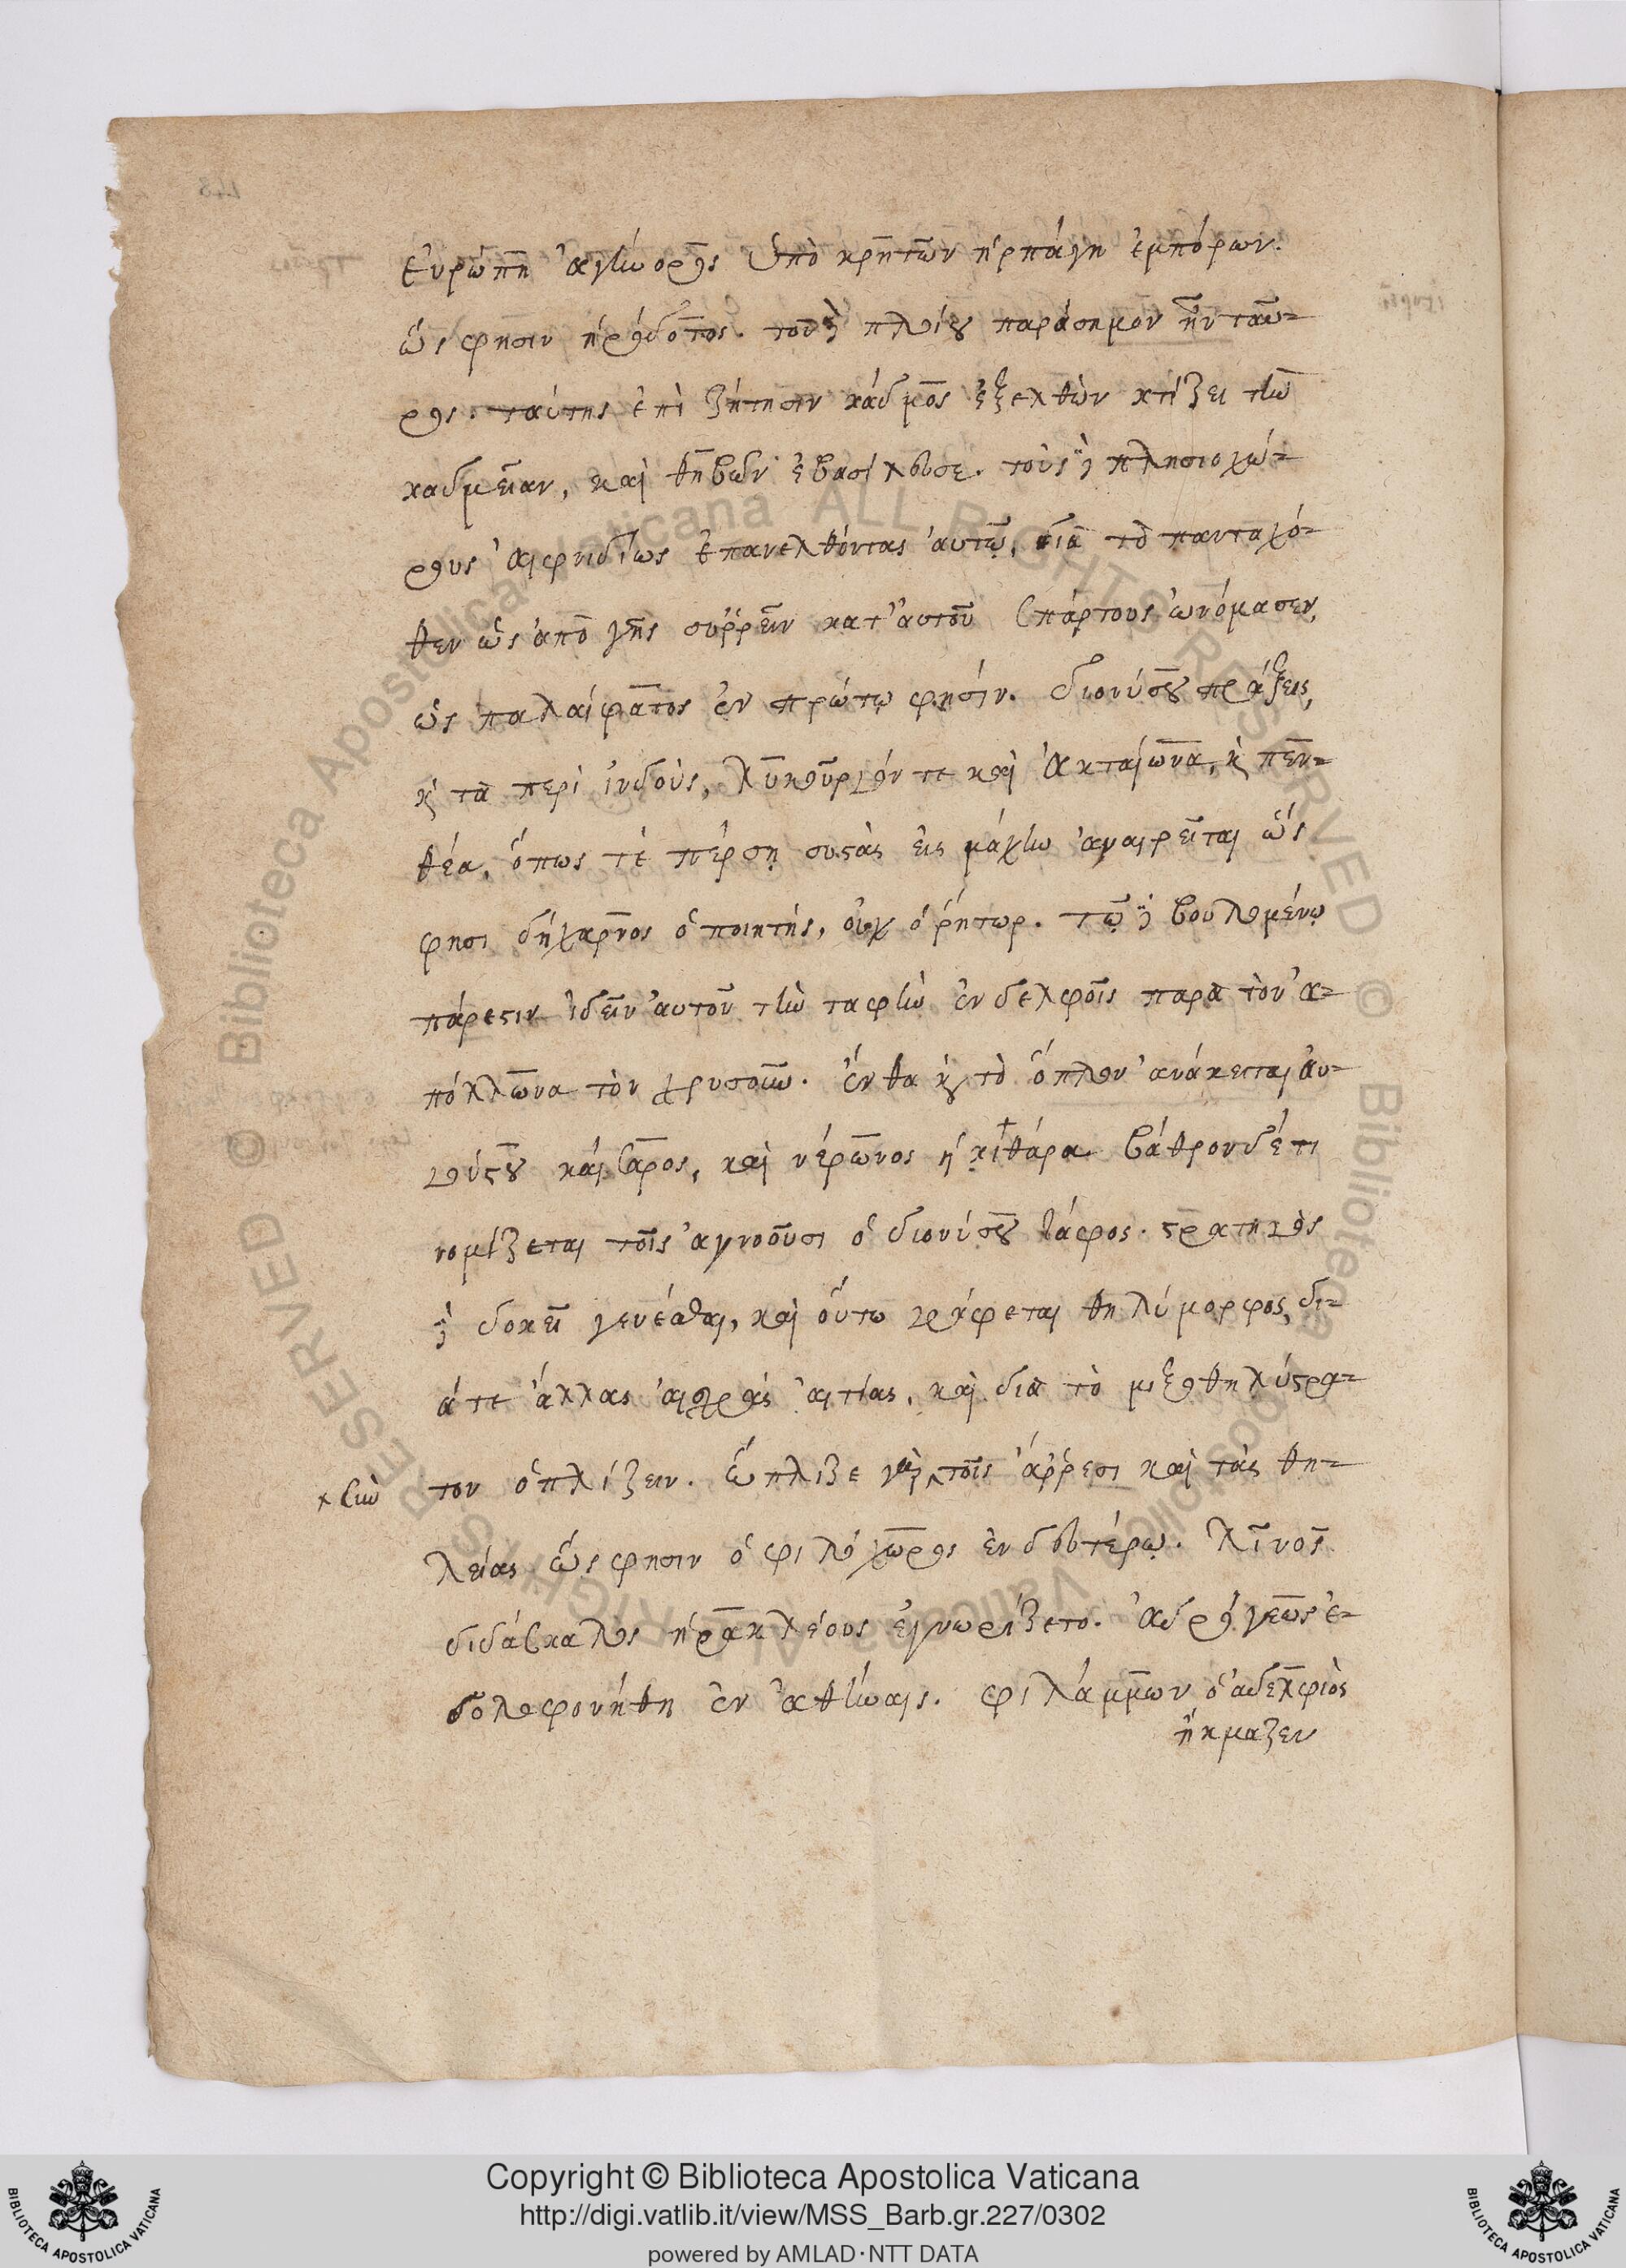 Ἐυρώπη ἀγήνορος ὑπὸ κρητῶν ἡρπάγη ἐμπόρων.
ὥς φησιν ἡρόδοτος. τοῦ δὲ πλοίου παράσημον ἦν ταῦ-
ρος. ταύτης ἐπὶ ζήτησιν κάδμος ἐξελθὼν κτίζει τὴν
καδμείαν, καὶ θηβῶν ἐβασίλευσε. τοὺς δὲ πλησιοχώ-
ρους αἰφνιδίως ἐπανελθόντας αὐτῷ, διὰ τὸ πανταχό-
θεν ὡς ἀπὸ γῆς συῤῥεῖν κατ' αὐτοῦ Σπάρτους ὠνόμασεν,
ὡς παλαίφατος ἐν πρώτῳ φησίν. διονύσου πράξεις,
κὶ τὰ περὶ ἰνδοὺς, λυκοῦργόν τε καὶ ἀκταίωνα, κὶ πεν-
θέα, ὅπως τὲ πέρσῃ συστὰς εἰς μάχην ἀναιρεῖται ὥς
φησι δήναρχος ὁ ποιητής, οὐχ ὁ ῥήτωρ. τῷ δὲ βουλομένῳ
πάρεστιν ἰδεῖν αὐτοῦ τὴν ταφὴν ἐν δελφοῖς παρὰ τὸν ἀ-
πόλλωνα τὸν χρυσοῦν. ἔνθα κὶ τὸ ὅπλον ἀνάκειται ἀυ-
γούστου καίσαρος, καὶ νέρωνος ἡ κιθάρα βάθρον δέ τι
νομίζεται τοῖς ἀγνοοῦσι ὁ διονύσου τάφος. στρατηγὸς
δὲ δοκεῖ γενέσθαι, καὶ οὕτω γράφεται θηλύμορφος, δι-
ά τε ἄλλας αἰσχρὰς αἰτίας, καὶ διὰ τὸ μιξοθηλύστρα-
τον ὁπλίζειν. ὥπλιζε γὰρ τοῖς ἄῤῥεσι καὶ τὰς θη-
× σὺν
λείας ὥς φησιν ὁ φιλόχωρος ἐν δευτέρῳ. λῖνος
διδάσκαλος ἡρακλέους ἐγνωρίζετο. ἀδρόγεως ἐ-
δολοφονήθη ἐν ἀθήναις. φιλάμμων ὁ ἀδελφιὸς
ἤκμαζεν
Copyright © Biblioteca Apostolica Vaticana
http://digi.vatlib.it/view/MSS_Barb.gr.227/0302
powered by AMLAD·NTT DATA